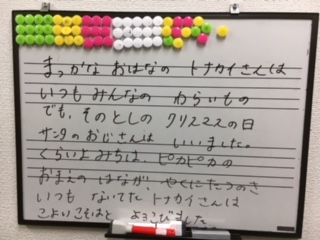 まっかな おはなの トナカイさんは
いつも みんなの わらいもの
でも、そのとしの クリスマスの日
サンタの おじさんは いいました。
くらいよみちは、ピカピカの
おまえの はなが、やくにたつのさ
いつも ないてた トナカイさんは
こよいこそはと よろこびました。